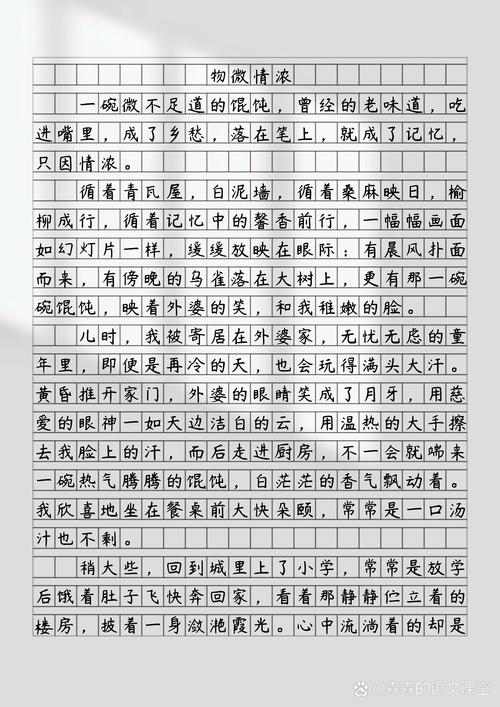 物微情浓
一碗微不足道的馄饨，曾经的老味道，吃
进嘴里，成了乡愁，落在笔上，就成了记忆，
只因情浓。
循着青瓦屋，白泥墙，循着桑麻映日，榆
柳成行，循着记忆中的馨香前行，一幅幅画面
如幻灯片一样，缓缓放映在眼际：有晨风扑面
而来，有傍晚的乌雀落在大树上，更有那一碗
碗馄饨，映着外婆的笑，和我稚嫩的脸。
儿时，我被寄居在外婆家，无忧无虑的童
年里，即使是再冷的天，也会玩得满头大汗。
黄昏推开家门，外婆的眼睛笑成了月牙，用慈
爱的眼神一如天边洁白的云，用温热的大手擦
去我脸上的汗，而后走进厨房，不一会就端来
一碗热气腾腾的馄饨，白茫茫的香气飘动着。
我欣喜地坐在餐桌前大快朵颐，常常是一口汤
汁也不剩。
稍大些，回到城里上了小学，常常是放学
后饿着肚子飞快奔回家，看着那静静伫立着的
楼房，披着一身潋滟霞光。心中流淌着的却是
@森森的语文课堂